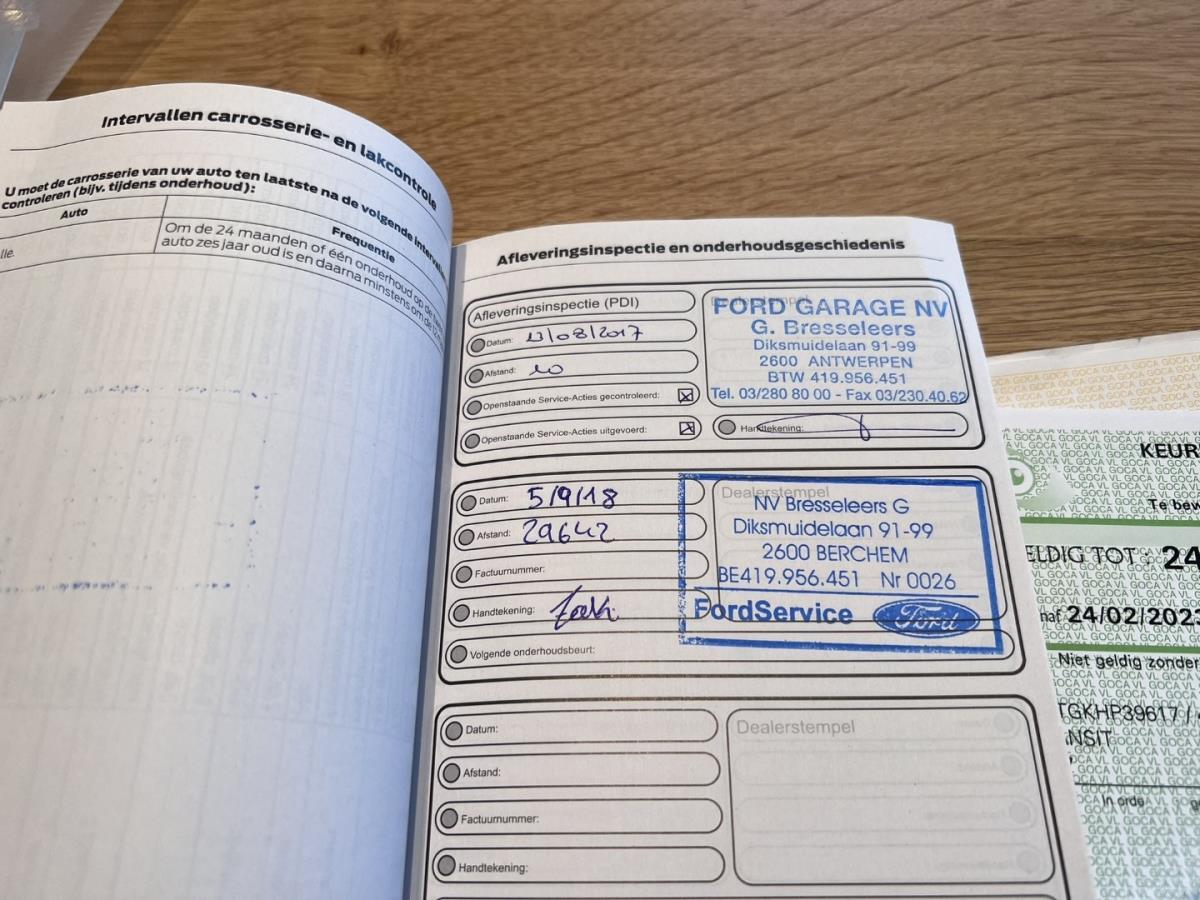 Intervallen carrosserie- en lakcontrole
U moet de carrosserie van uw auto ten laatste na de volgende
controleren (bijv. tijdens onderhoud):
Auto
Frequentie
lle.
Om de 24 maanden of één onderhoud op de
auto zes jaar oud is en daarna minstens om de
Afleveringsinspectie en onderhoudsgeschiedenis
Afleveringsinspectie (PDI)
Datum: 13/08/2017
Afstand: 10
Openstaande Service-Acties gecontroleerd:
Openstaande Service-Acties uitgevoerd:
Dealerstempel
FORD GARAGE NV
G. Bresseleers
Diksmuidelaan 91-99
2600 ANTWERPEN
BTW 419.956.451
Tel. 03/280 80 00 - Fax 03/230.40.62
Handtekening:
Datum: 5/9/18
Afstand: 29642
Factuurnummer:
Handtekening:
Volgende onderhoudsbeurt:
Dealerstempel
NV Bresseleers G
Diksmuidelaan 91-99
2600 BERCHEM
BE419.956.451 Nr 0026
FordService Ford
Datum:
Afstand:
Factuurnummer:
Handtekening:
Dealerstempel
KEUR
Te bew
ELDIG TOT : 24
naf 24/02/2023
Niet geldig zonder
TGKHP39617 /
NSIT
In orde